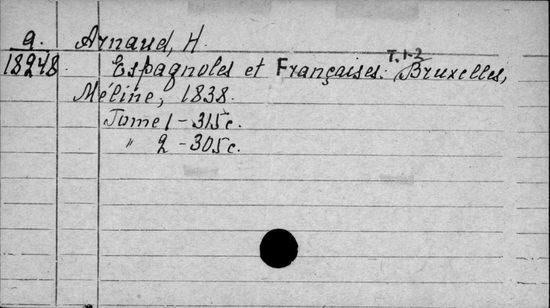 a. Arnaud, H.
18248 Espagnoles et Françaises. T. 1-2 Bruxelles,
Méline, 1838.
Tome 1 - 315 c.
" 2 - 305 c.